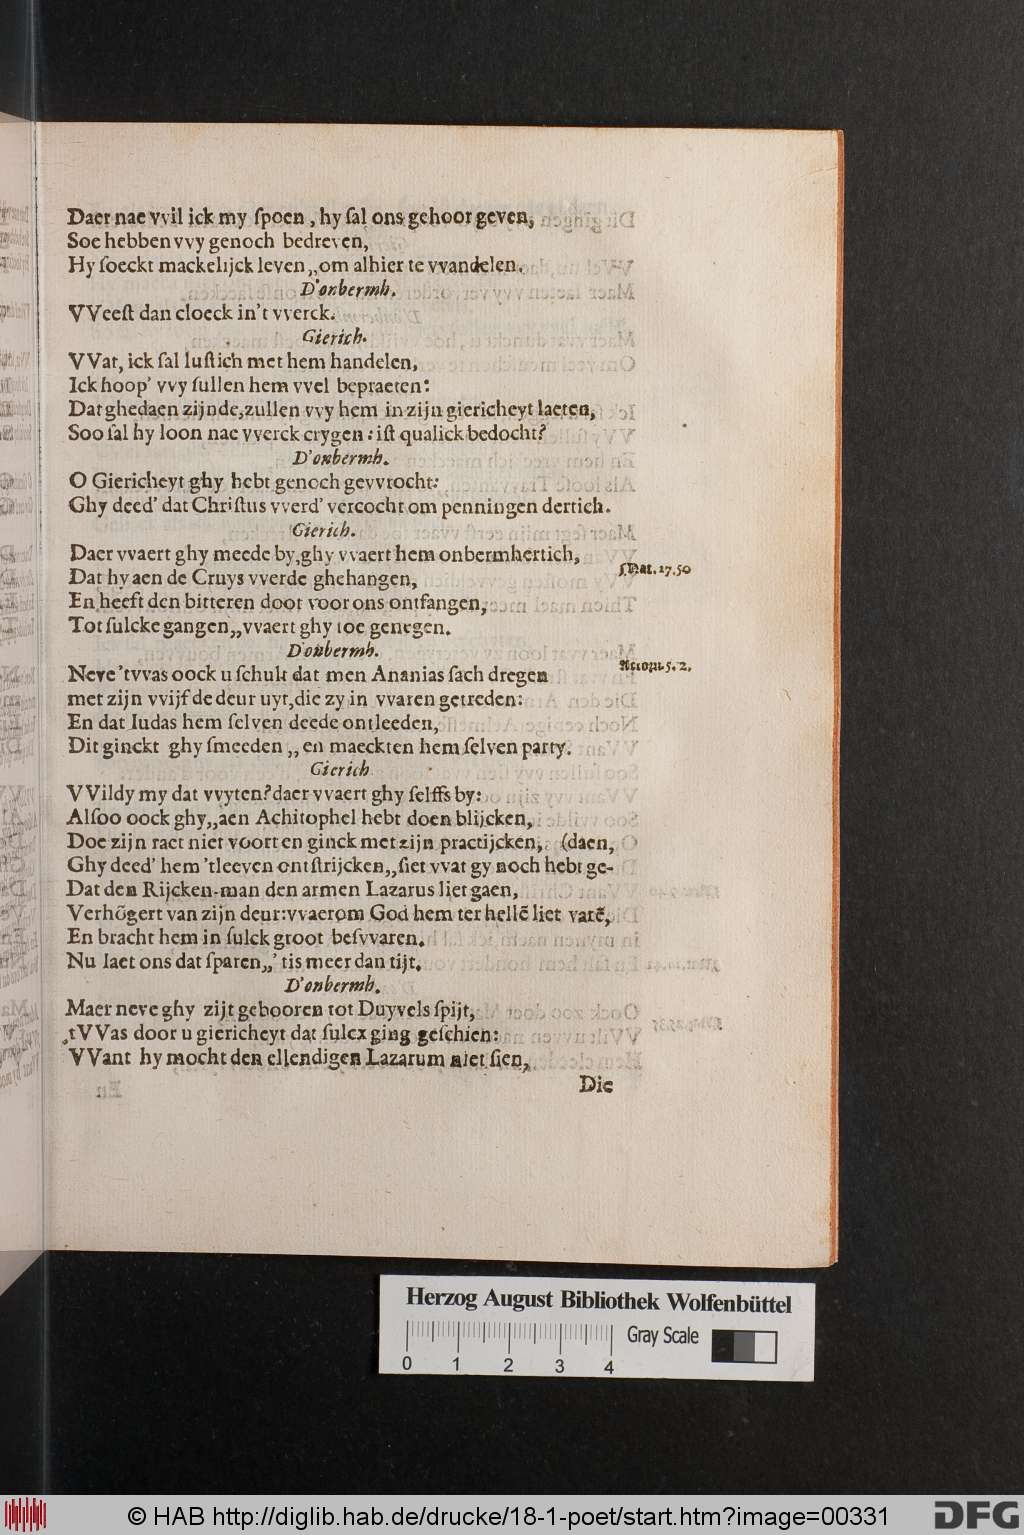 Daer nae vvil ick my ſpoen, hy ſal ons gehoor geven,
Soe hebben vvy genoch bedreven,
Hy ſoeckt mackelijck leven,,om alhier te vvandelen.
D'onbermh.
VVeeſt dan cloeck in't vverck.
Gierich.
VVat, ick ſal luſtich met hem handelen,
Ick hoop' vvy ſullen hem vvel bepraeten:
Dat ghedaen zijnde,zullen vvy hem in zijn giericheyt laeten,
Soo ſal hy loon nae vverck crygen: iſt qualick bedocht?
D'onbermh.
O Giericheyt ghy hebt genoch gevvrocht:
Ghy deed' dat Chriſtus vverd' vercocht om penningen dertich.
Gierich.
Daer vvaert ghy meede by,ghy vvaert hem onbermhertich,
Dat hy aen de Cruys vverde ghehangen,
Mat.17.50
En heeft den bitteren doot voor ons ontfangen,
Tot ſulcke gangen,,vvaert ghy toe genegen.
D'onbermh.
Neve 'tvvas oock u ſchult dat men Ananias ſach dregen
Actorū.5.2.
met zijn vvijf de deur uyt,die zy in vvaren getreden:
En dat Iudas hem ſelven deede ontleeden,
Dit ginckt ghy ſmeeden,,en maeckten hem ſelven party.
Gierich
VVildy my dat vvyten? daer vvaert ghy ſelffs by:
Alſoo oock ghy,,aen Achitophel hebt doen blijcken,
Doe zijn raet niet voort en ginck met zijn practijcken, (daen,
Ghy deed' hem 'tleeven ontſtrijcken,,ſiet vvat gy noch hebt ge-
Dat den Rijcken-man den armen Lazarus liet gaen,
Verhõgert van zijn deur:vvaerom God hem ter hellẽ liet varẽ,
En bracht hem in ſulck groot beſvvaren.
Nu laet ons dat ſparen,,'tis meer dan tijt.
D'onbermh.
Maer neve ghy zijt gebooren tot Duyvels ſpijt,
,tVVas door u giericheyt dat ſulcx ging geſchien:
VVant hy mocht den ellendigen Lazarum niet ſien,
Die
Herzog August Bibliothek Wolfenbüttel
Gray Scale
0 1 2 3 4
© HAB http://diglib.hab.de/drucke/18-1-poet/start.htm?image=00331
DFG